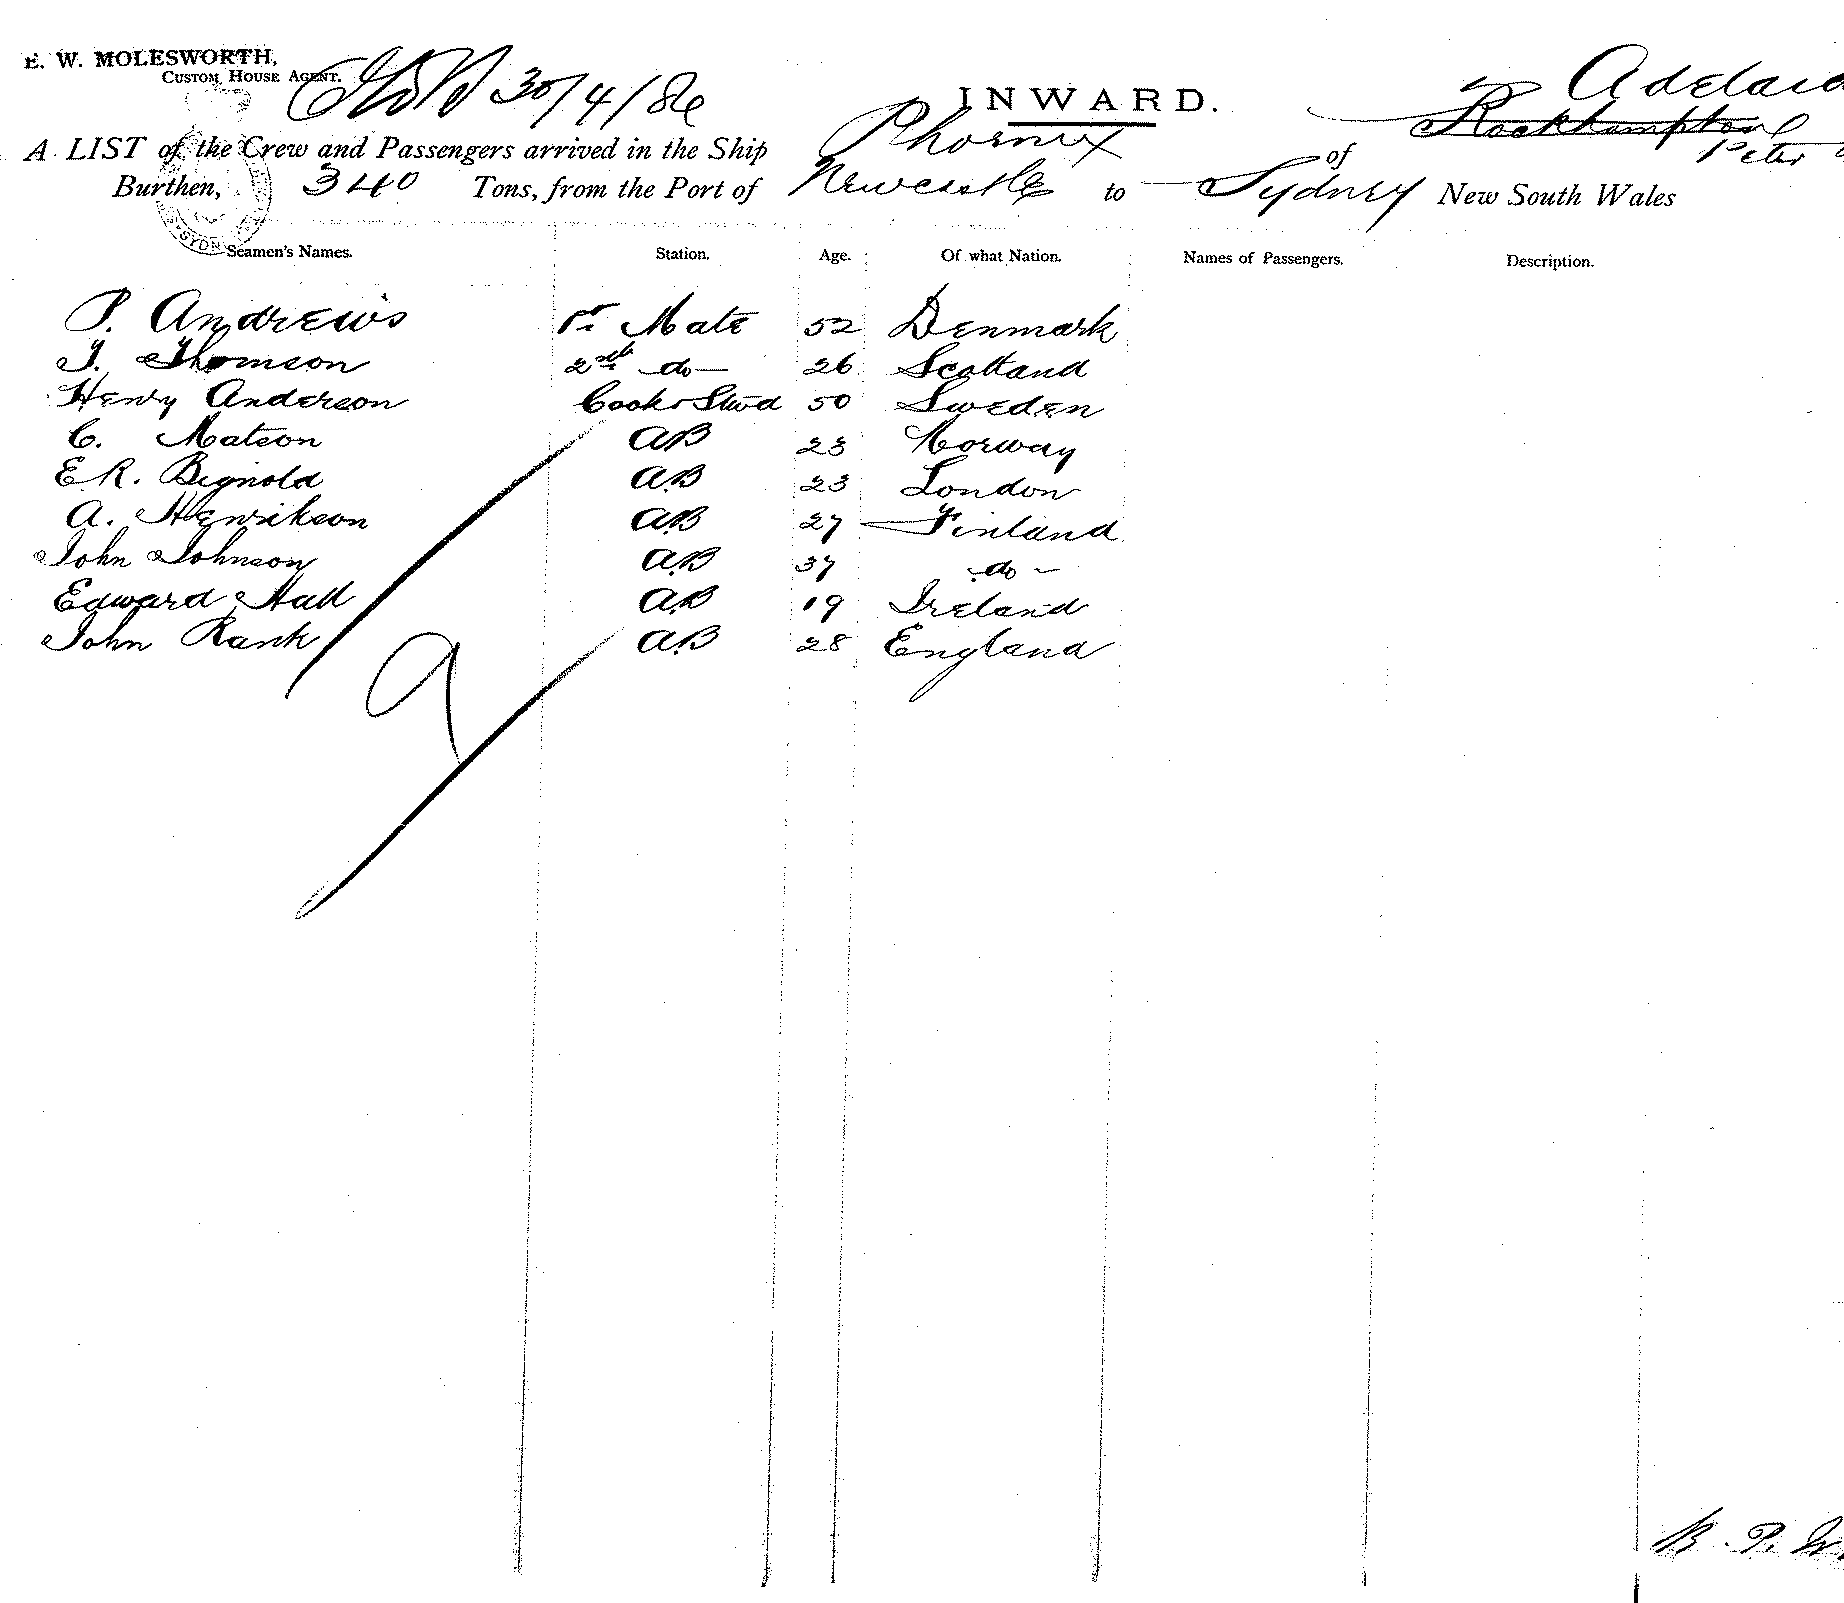 E. W. MOLESWORTH,
CUSTOM HOUSE AGENT.
30/4/86
INWARD.
Adelaid
Rockhampton
A LIST of the Crew and Passengers arrived in the Ship Phoenix of Peter
Burthen, 340 Tons, from the Port of Newcastle to Sydney New South Wales
SYDN
Seamen's Names. Station. Age. Of what Nation. Names of Passengers. Description.
P. Andrews 1st Mate 52 Denmark
T. Thomson 2nd do 26 Scotland
Henry Anderson Cook & Stwd 50 Sweden
C. Matson AB 23 Norway
E R. Bignold A.B 23 London
A. Henrikson A.B 27 Finland
John Johnson A.B 37 do
Edward Hall A.B 19 Ireland
John Rank A.B 28 England
9